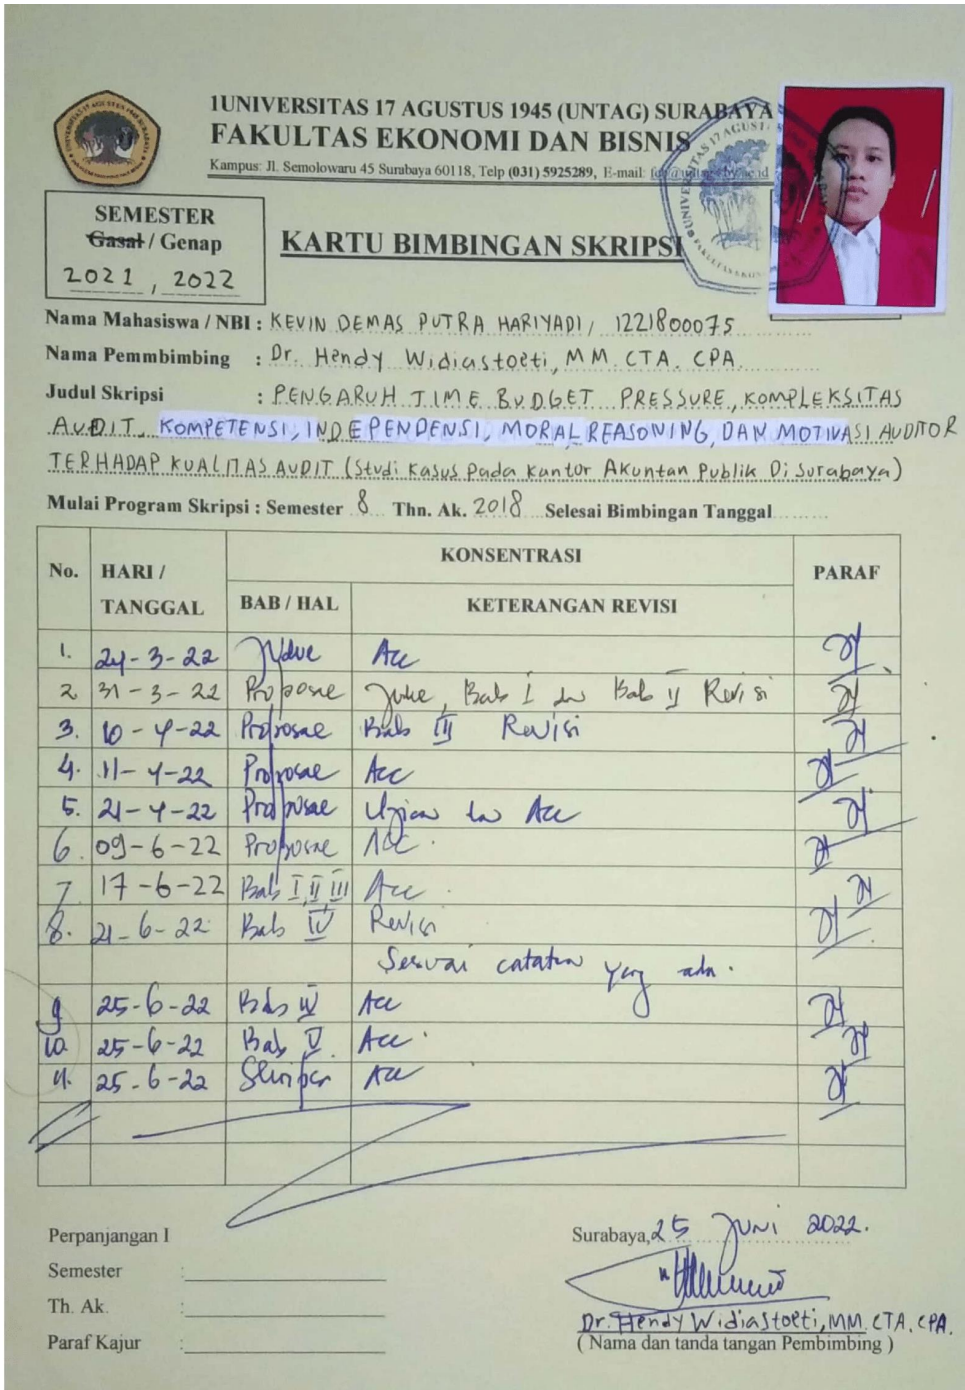 1UNIVERSITAS 17 AGUSTUS 1945 (UNTAG) SURABAYA
FAKULTAS EKONOMI DAN BISNIS
Kampus: Jl. Semolowaru 45 Surabaya 60118, Telp (031) 5925289, E-mail:
SEMESTER
Gasal / Genap
2021, 2022
KARTU BIMBINGAN SKRIPSI
Nama Mahasiswa / NBI : KEVIN DEMAS PUTRA HARIYADI / 1221800075
Nama Pemmbimbing : Dr. Hendy Widiastoeti, MM. CTA. CPA.
Judul Skripsi : PENGARUH TIME BUDGET PRESSURE, KOMPLEKSITAS
AUDIT, KOMPETENSI, INDEPENDENSI, MORAL REASONING, DAN MOTIVASI AUDITOR
TERHADAP KUALITAS AUDIT (Studi Kasus Pada Kantor Akuntan Publik Di Surabaya)
Mulai Program Skripsi : Semester 8 Thn. Ak. 2018 Selesai Bimbingan Tanggal
KONSENTRASI
No. HARI / TANGGAL BAB / HAL KETERANGAN REVISI PARAF
1. 24-3-22 Acc
2 31-3-22 Proposal Bab I Bab II Revisi
3. 10-4-22 Proposal Bab III Revisi
4. 11-4-22 Proposal Acc
5. 21-4-22 Proposal Acc
6. 09-6-22 Proposal Acc.
7 17-6-22 Bab I, II, III Acc.
8. 21-6-22 Bab IV Revisi
Sesuai catatan yang ada.
9 25-6-22 Bab IV Acc
10. 25-6-22 Bab V. Acc.
11. 25-6-22 Skripsi Acc
Perpanjangan I
Semester :
Th. Ak. :
Paraf Kajur :
Surabaya, 25 JUNI 2022.
Dr. Hendy Widiastoeti, MM. CTA. CPA.
( Nama dan tanda tangan Pembimbing )